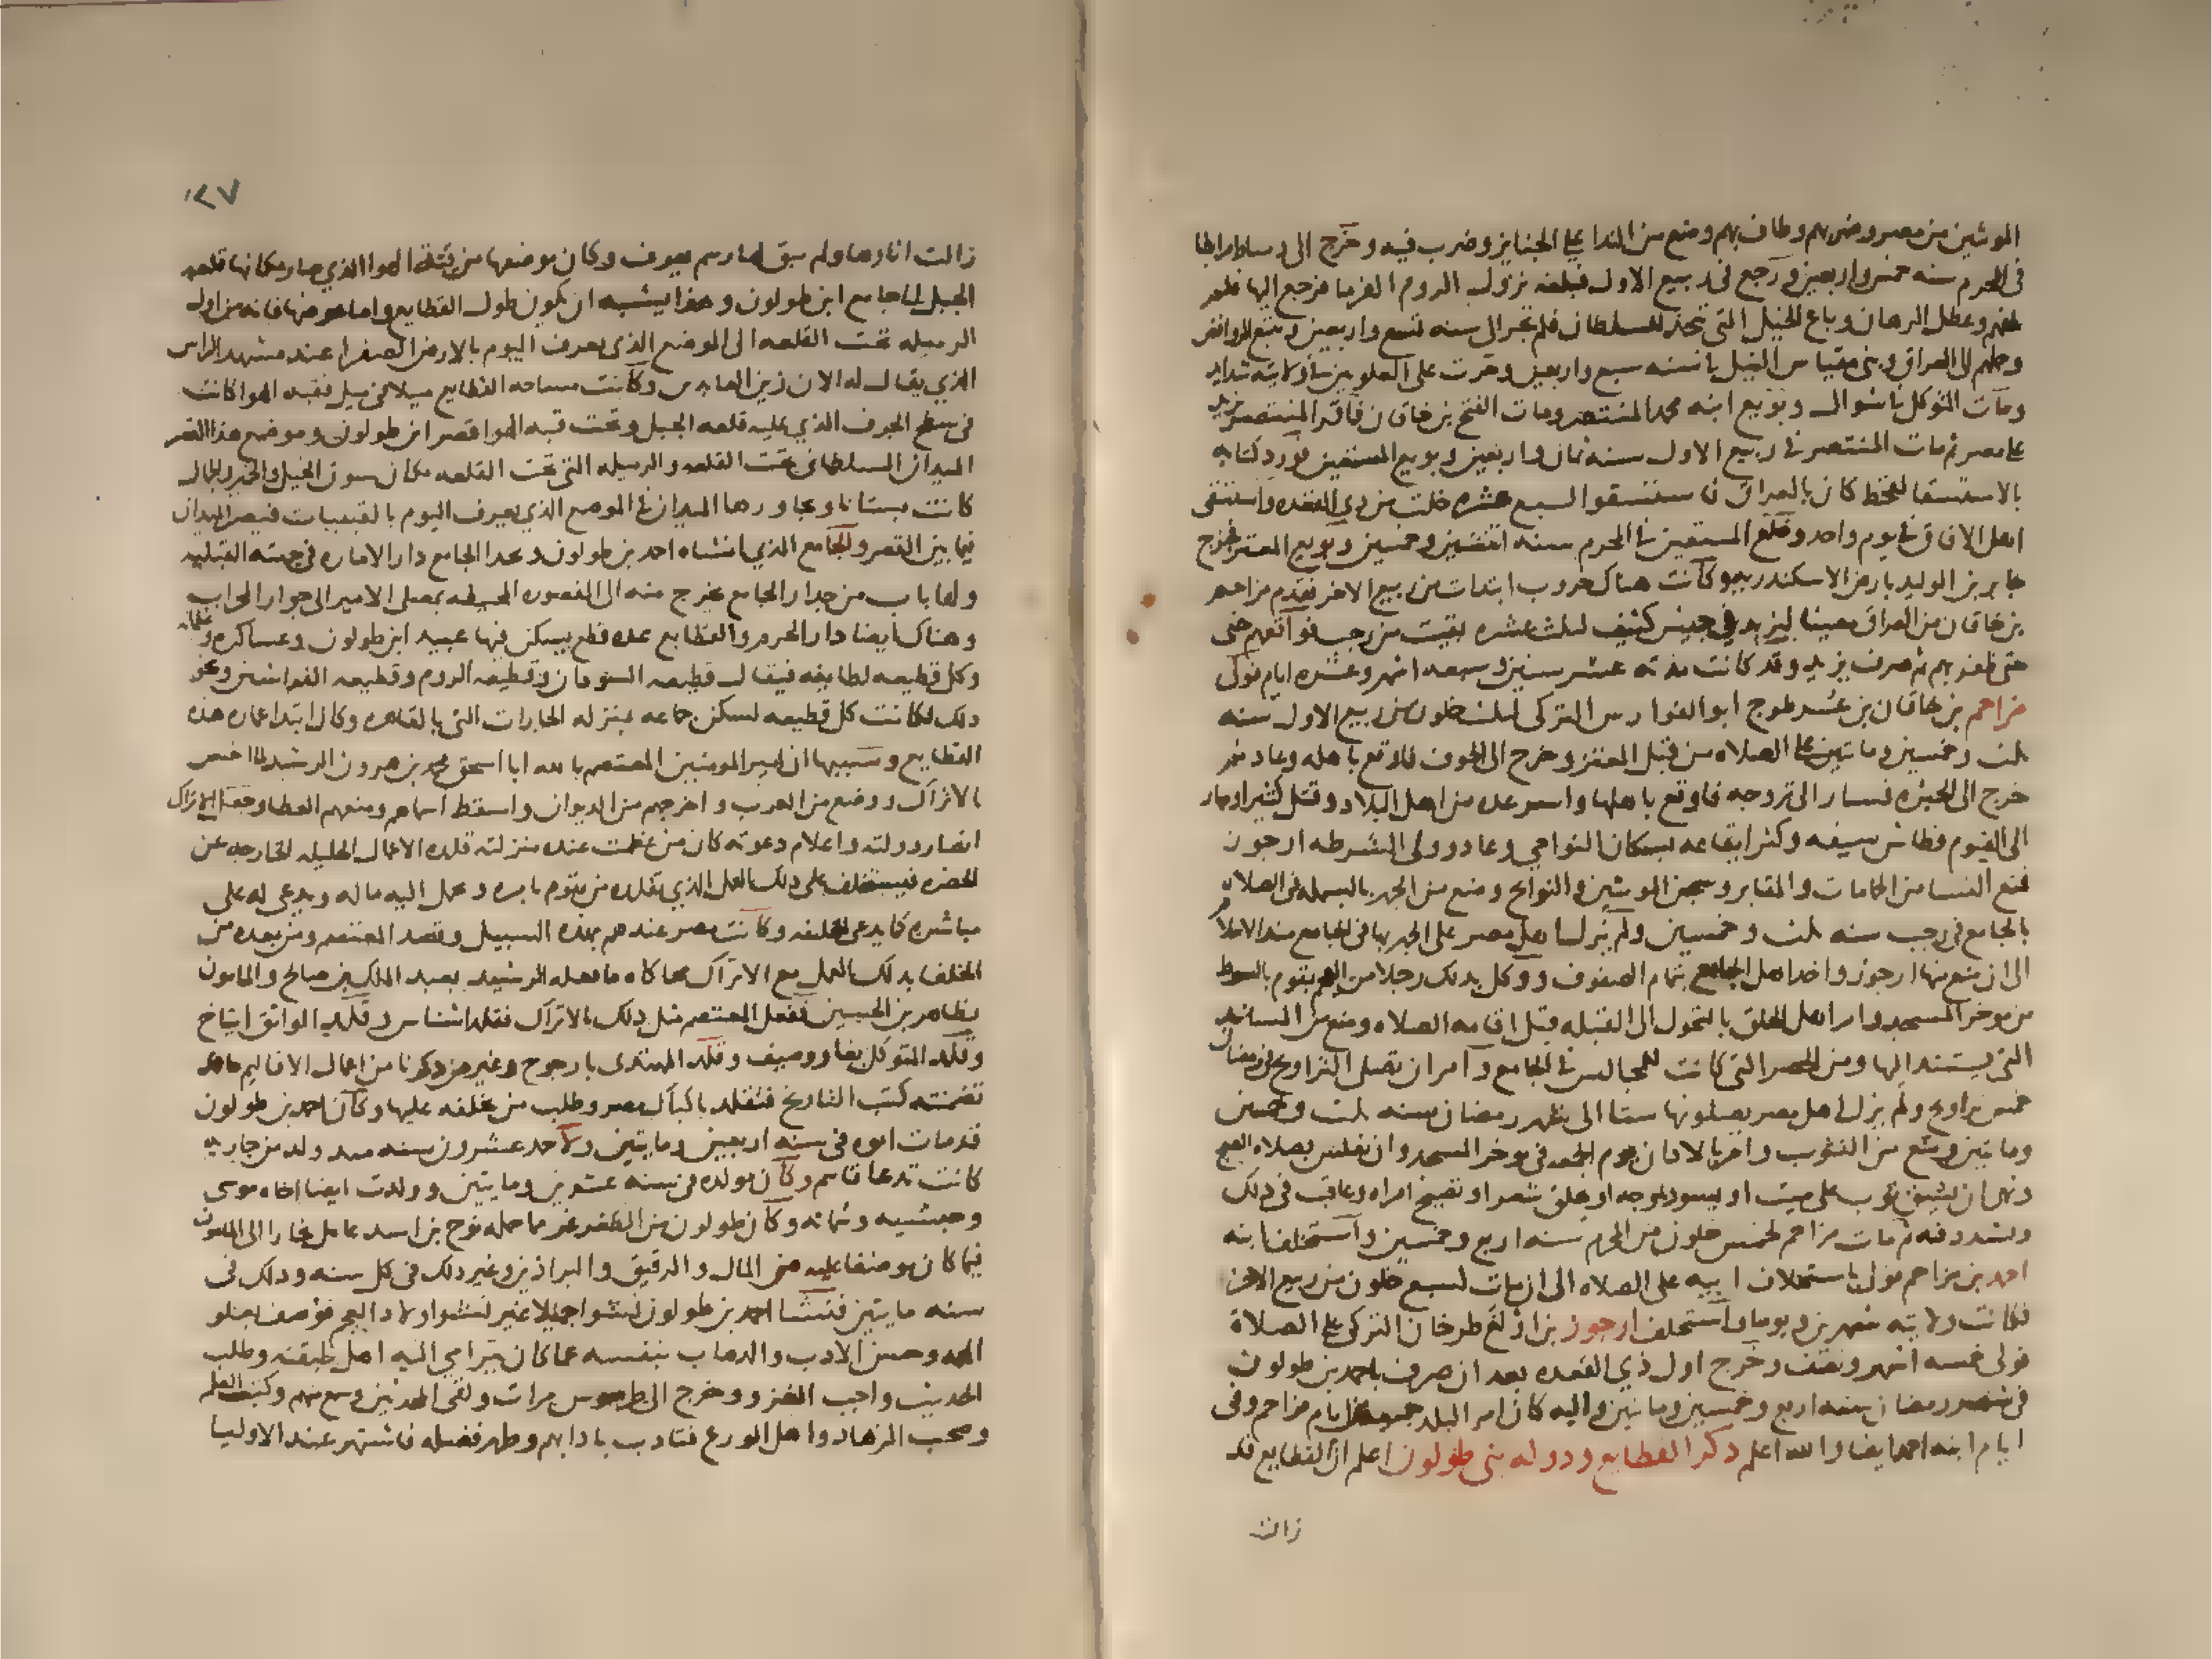 المونثين من مصر وضربهم وطاف بهم ومنع من الندا على الجنايز وضرب فيه وخرج الى دمياط مرابطا
فى المحرم سنه خمس واربعين ورجع فى ربيع الاول فبلغه نزول الروم الفرما فرجع اليها فلم
يلقهم وعطل الرهان وباع الخيل التى تتخذ للسلطان فلم تجر الى سنه تسع واربعين وتتبع الروافض
وحملهم الى العراق وبنى مقياس النيل فى سنه سبع واربعين وجرت على العلويين فى ولايته شدايد
ومات المتوكل فى شوال وبويع ابنه محمد المنتصر ومات الفتح بن خاقان فاقر المنتصر يزيد
على مصر ثم مات المنتصر فى ربيع الاول سنه ثمان واربعين وبويع المستعين فورد كتابه
بالاستسقا لقحط كان بالعراق فاستسقوا لسبع عشره خلت من ذي القعده واستسقى
اهل الافاق فى يوم واحد وخلع المستعين فى المحرم سنه اثنتين وخمسين وبويع المعتز فخرج
جابر بن الوليد بارض الاسكندريه وكانت هناك حروب ابتدات من ربيع الاخر فقدم مزاحم
بن خاقان من العراق معينا ليزيد فى جيش كثيف لثلث عشره بقيت من رجب فواقعهم حتى
حتى ظفر بهم ثم صرف يزيد وقد كانت مدته عشر سنين وسبعه اشهر وعشره ايام فولى
مزاحم بن خاقان بن عرطوج ابو الفوارس التركى لثلث خلون من ربيع الاول سنه
ثلث وخمسين وماتين على الصلاه من قبل المعتز وخرج الى الحوف فاوقع باهله وعاد ثم
خرج الى الجيزه فسار الى تروجه فاوقع باهلها واسر عده من اهل البلاد وقتل كثيرا وسار
الى الفيوم فطاش سيفه وكثر ايقاعه بسكان النواحي وعاد وولى الشرطه ارجون
فمنع النسا من الحمامات والمقابر وسجن المونثين والنوايح ومنع من الجهر بالبسمله فى الصلاه
بالجامع فى رجب سنه ثلث وخمسين ولم يزل اهل مصر على الجهر بها فى الجامع منذ الاسلام
الى ان منع منها ارجوز واخذ اهل الجامع بتمام الصفوف ووكل بذلك رجلا من العجم يقوم بالسوط
من موخر المسجد وامر اهل الحلق بالتحول الى القبله قبل اقامه الصلاه ومنع من المساند
التى يستند اليها ومن الحصر التى كانت للمجالس فى الجامع وامر ان تصلى التراويح فى رمضان
خمس تراويح ولم يزل اهل مصر يصلونها ستا الى شهر رمضان سنه ثلث وخمسين
وماتين ومنع من التثويب وامر بالاذان يوم الجمعه فى موخر المسجد وان يغلس بصلاه الصبح
ونهى ان يشق ثوب على ميت او يسود وجه او يحلق شعر او تصيح امراه وعاقب فى ذلك
وشدد فيه ثم مات مزاحم لخمس خلون من المحرم سنه اربع وخمسين واستخلف ابنه
احمد بن مزاحم فولى باستخلاف ابيه على الصلاه الى ان مات لسبع خلون من ربيع الاخر
فكانت ولايته شهرين ويوما واستخلف ارجوز بن اولغ طرخان التركى على الصلاة
فولى خمسه اشهر ونصف وخرج اول ذي القعده بعد ان صرف باحمد بن طولون
فى شهر رمضان سنه اربع وخمسين وماتين واليه كان امر البلد ايام مزاحم وفى
ايام ابنه احمد ايضا والله اعلم ذكر القطايع ودوله بنى طولون اعلم ان القطايع قد
زالت
١٢٧
زالت اثارها ولم يبق لها رسم يعرف وكان موضعها من قبه الهوا الذي صار مكانها قلعه
الجبل الى جامع ابن طولون وهذا يشبه ان يكون طول القطايع واما عرضها فانه من اول
الرميله تحت القلعه الى الموضع الذي يعرف اليوم بالارض الصفرا عند مشهد الراس
الذي يقال له الان زين العابدين وكانت مساحه القطايع ميلا فى ميل فقبه الهوا كانت
فى سطح الجرف الذي عليه قلعه الجبل وتحت قبه الهوا قصر ابن طولون وموضع هذا القصر
الميدان السلطانى تحت القلعه والرميله التى تحت القلعه مكان سوق الخيل والحمير والجمال
كانت بستانا ويجاورها الميدان فى الموضع الذي يعرف اليوم بالقبيبات فيصير الميدان
فيما بين القصر والجامع الذي انشاه احمد بن طولون وبحذا الجامع دار الاماره فى جهته القبليه
ولها باب من جدار الجامع يخرج منه الى المقصوره المحيطه بمصلى الامير الى جوار المحراب
وهناك ايضا دار الحرم والقطايع عده قطع يسكن فيها عبيد ابن طولون وعساكره وغلمانه
وكل قطيعه لطايفه فيقال قطيعه السودان وقطيعه الروم وقطيعه الفراشين ونحو
ذلك فكانت كل قطيعه لسكن جماعه بمنزله الحارات التى بالقاهره وكان ابتدا عماره هذه
القطايع وسببها ان امير المومنين المعتصم بالله ابا اسحق محمد بن هرون الرشيد لما اختص
بالاتراك ووضع من العرب واخرجهم من الديوان واسقط اسماهم ومنعهم العطا وجعل الاتراك
انصار دولته واعلام دعوته كان من عظمت عنده منزلته قلده الاعمال الجليله الخارجه عن
الحضره فيستخلف على ذلك العمل الذي تقلده من يقوم بامره ويحمل اليه ماله ويدعى له على
منابره كما يدعى للخليفه وكانت مصر عندهم بهذه السبيل وقصد المعتصم ومن بعده من
الخلفا بذلك العمل مع الاتراك محاكاه ما فعله الرشيد بعبد الملك بن صالح والمامون
بطاهر بن الحسين ففعل المعتصم مثل ذلك بالاتراك فقلد اشناس وقلد الواثق ايتاخ
وقلد المتوكل بغا ووصيف وقلد المهتدى بارجوج وغير من ذكرنا من اعمال الاقاليم ما قد
تضمنته كتب التاريخ فتقلد باكباك مصر وطلب من يخلفه عليها وكان احمد بن طولون
قد مات ابوه فى سنه اربعين وماتين ولاحمد عشرون سنه منذ ولد من جاريه
كانت تدعا قاسم وكان مولده فى سنه عشرين وماتين وولدت ايضا اخاه موسى
وحبشيه وسمانه وكان طولون من الطغزغز مما حمله نوح بن اسد عامل بخارا الى المامون
فيما كان موظفا عليه من المال والرقيق والبراذين وغير ذلك فى كل سنه وذلك فى
سنه مايتين فنشا احمد بن طولون نشوا جميلا غير نشو اولاد العجم فوصف بعلو
الهمه وحسن الادب والذهاب بنفسه عما كان يترامى اليه اهل طبقته وطلب
الحديث واحب الغزو وخرج الى طرسوس مرات ولقى المحدثين وسمع منهم وكتب العلم
وصحب الزهاد واهل الورع فتادب بادابهم وظهر فضله فاشتهر عند الاوليا